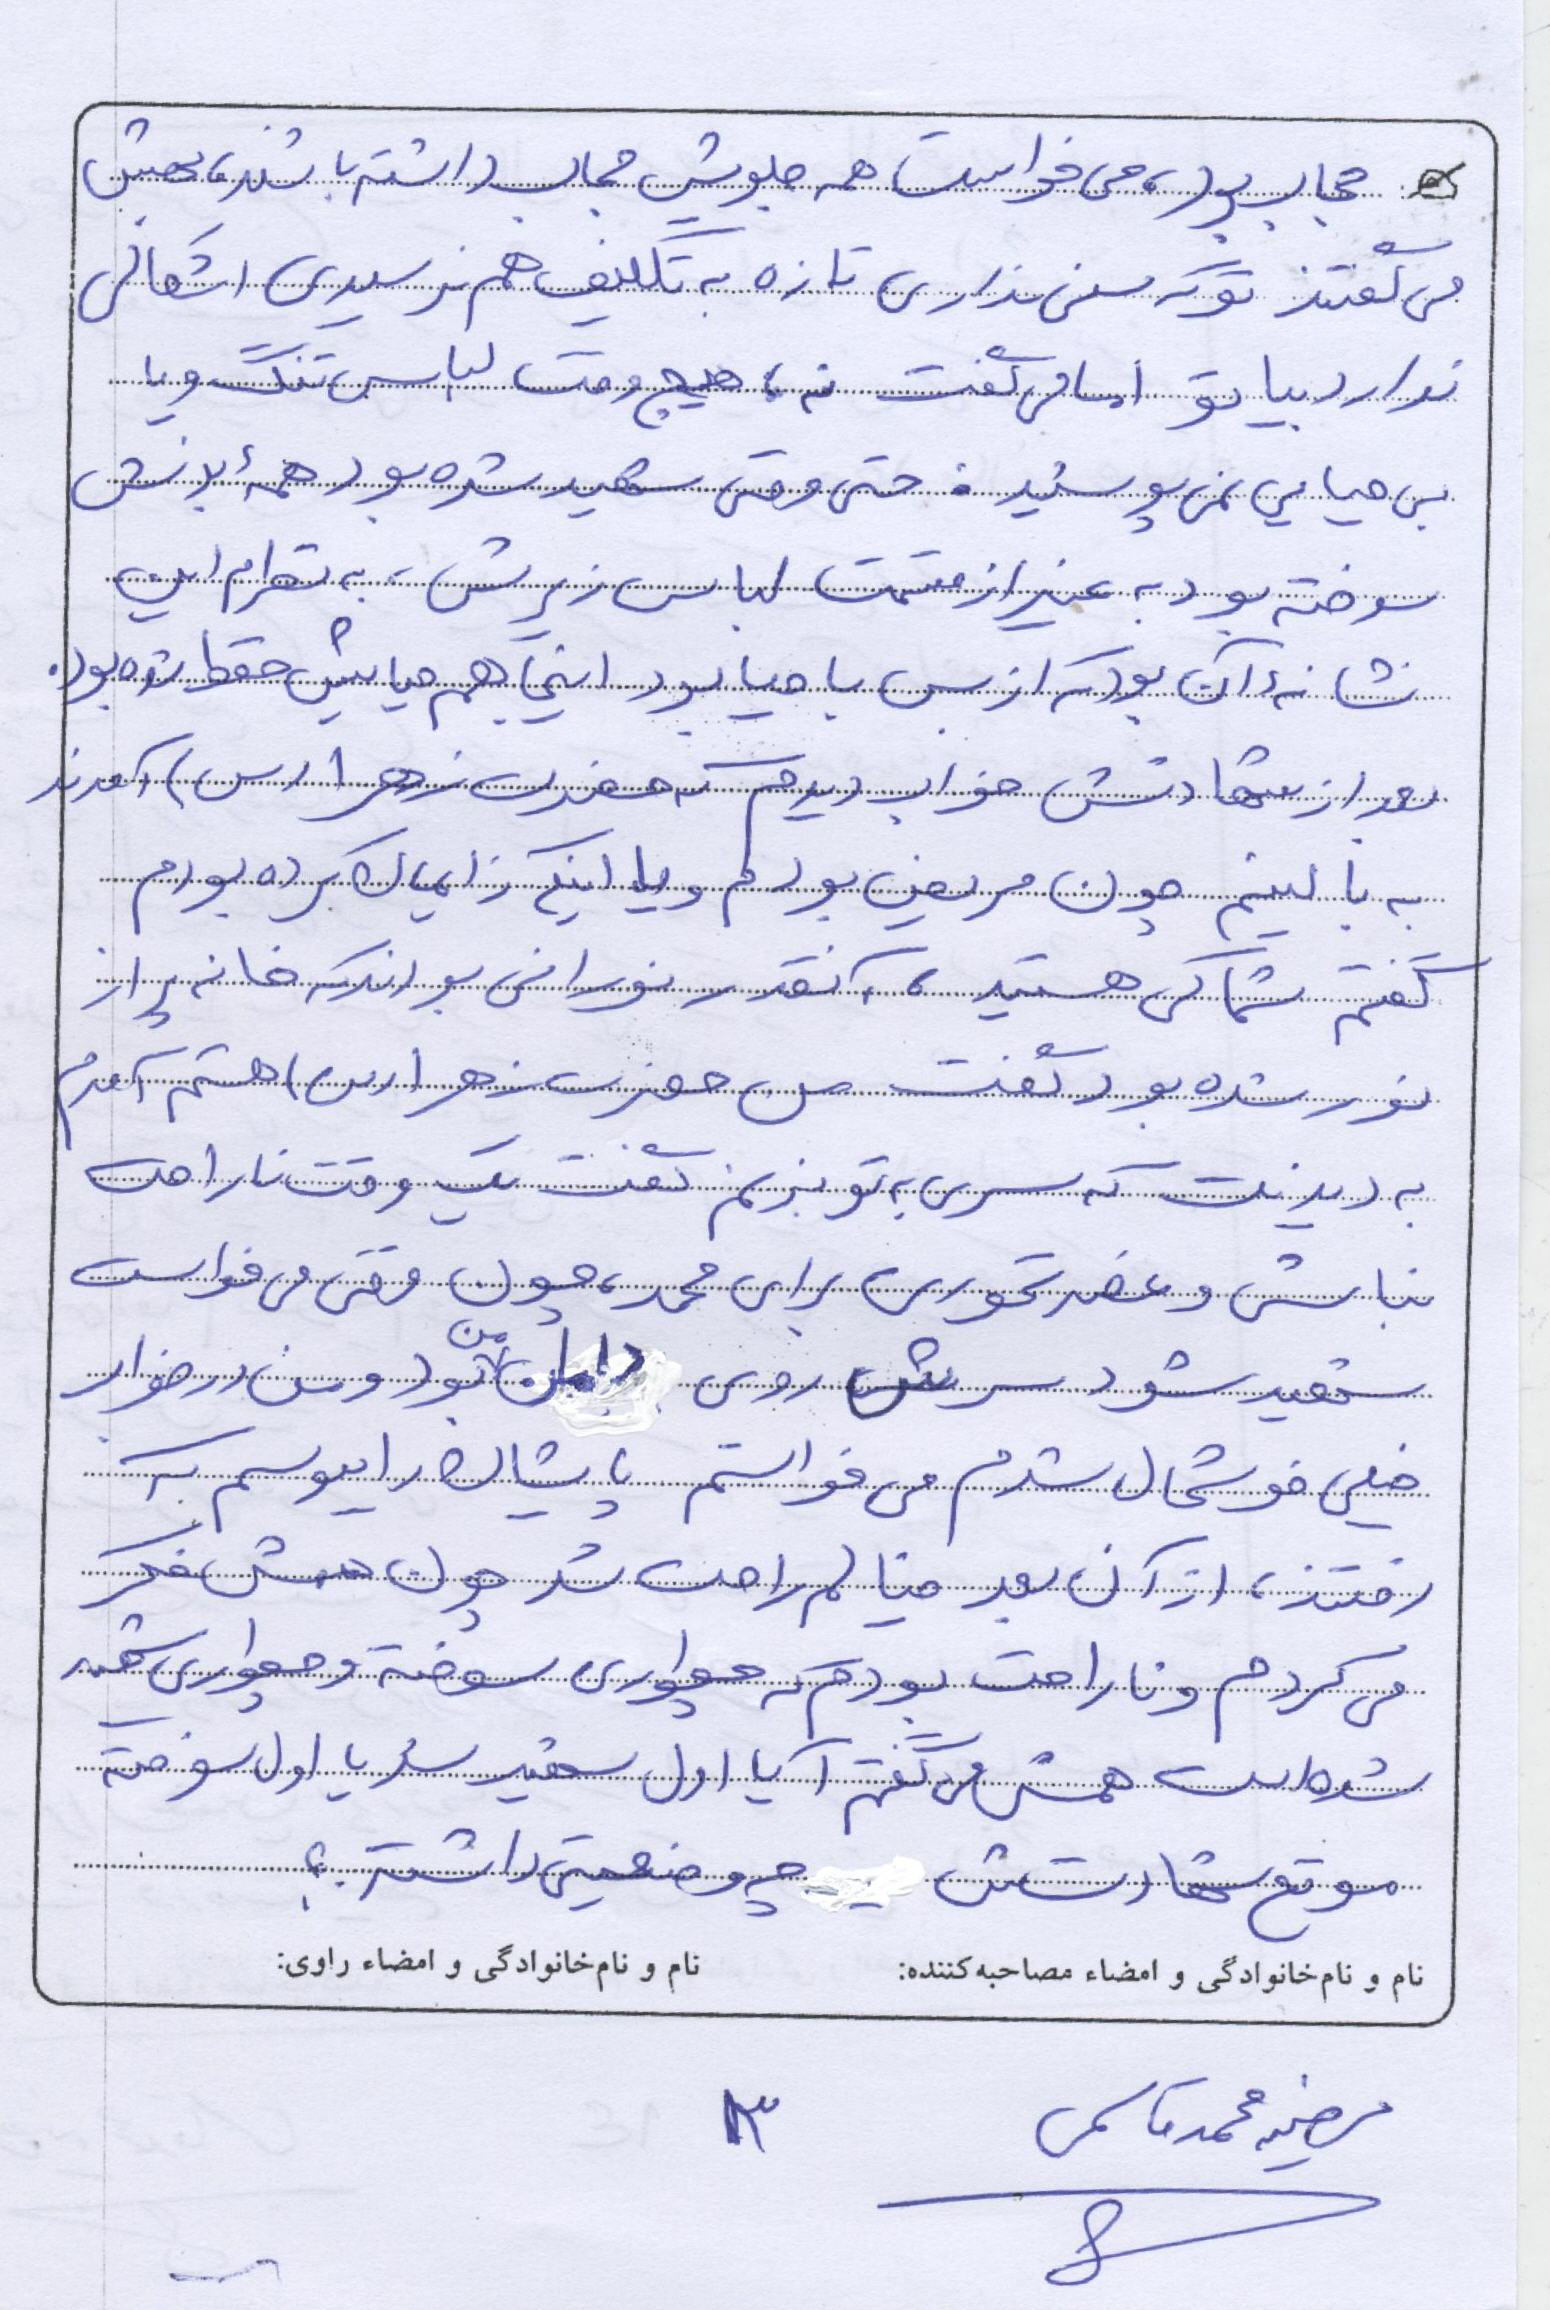 حجاب بود، می خواست همه جلویش حجاب داشته باشند، بهش
می گفتند تو که سنی نداری تازه به تکلیف هم نرسیدی اشکالی
ندارد بیا تو اما می گفت نه، هیچ وقت لباس تنگ و یا
بی حیایی نمی پوشید. حتی وقتی شهید شده بود همهٔ بدنش
سوخته بود به غیر از قسمت لباس زیرش، به نظرم این
نشانهٔ آن بود که از بس با حیا بود اینجا هم حیایش حفظ شده بود.
بعد از شهادتش خواب دیدم که حضرت زهرا (س) آمدند
به بالینم چون مریض بودم و یا اینکه زایمان کرده بودم
گفتم شما کی هستید، آنقدر نورانی بودند که خانه پر از
نور شده بود گفت من حضرت زهرا (س) هستم آمدم
به دیدنت که سری به تو بزنم گفت یک وقت ناراحت
نباشی و غصه نخوری برای محمد، چون وقتی می خواست
شهید شود سرش روی دامن من بود و من در خواب
خیلی خوشحال شدم می خواستم پایشان را ببوسم که
رفتند، از آن بعد خیالم راحت شد چون همش فکر
می کردم و ناراحت بودم که چجوری سوخته و چجوری شهید
شده است همش می گفتم آیا اول شهید شد یا اول سوخته
موقع شهادتش چه وضعیتی داشته؟
نام و نام‌خانوادگی و امضاء مصاحبه‌کننده: نام و نام‌خانوادگی و امضاء راوی:
مرضیه محمدقاسمی ۱۳